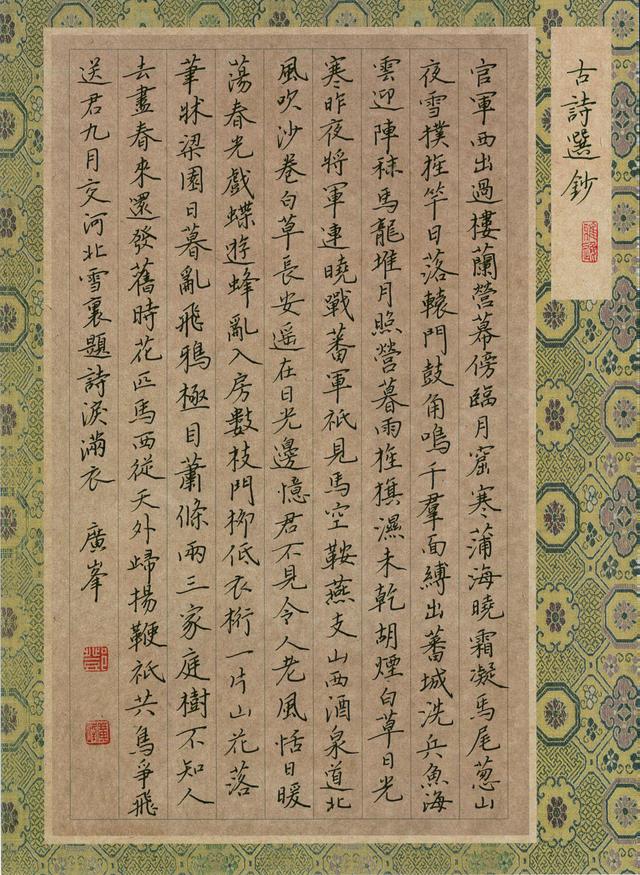 古詩選鈔
官軍西出過樓蘭營幕傍臨月窟寒蒲海曉霜凝馬尾蔥山
夜雪撲旌竿日落轅門鼓角鳴千羣面縛出蕃城洗兵魚海
雲迎陣秣馬龍堆月照營暮雨旌旗濕未乾胡煙白草日光
寒昨夜將軍連曉戰蕃軍祇見馬空鞍燕支山西酒泉道北
風吹沙卷白草長安遥在日光邊憶君不見令人老風恬日暖
蕩春光戲蝶遊蜂亂入房數枝門柳低衣桁一片山花落
筆牀梁園日暮亂飛鴉極目蕭條兩三家庭樹不知人
去盡春來還發舊時花匹馬西從天外歸揚鞭祇共鳥爭飛
送君九月交河北雪裏題詩淚滿衣 廣峯